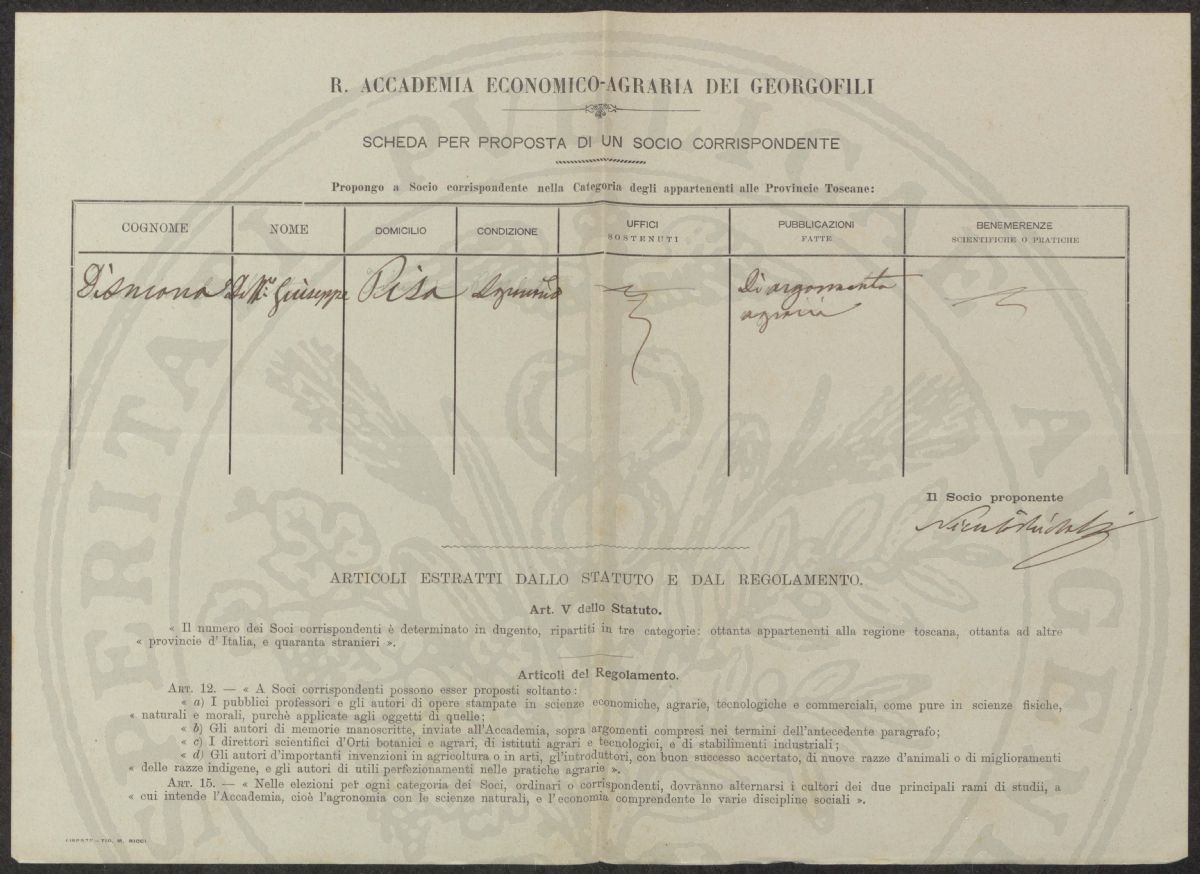 R. ACCADEMIA ECONOMICO-AGRARIA DEI GEORGOFILI
SCHEDA PER PROPOSTA DI UN SOCIO CORRISPONDENTE
Propongo a Socio corrispondente nella Categoria degli appartenenti alle Provincie Toscane:
COGNOME NOME DOMICILIO CONDIZIONE UFFICI SOSTENUTI PUBBLICAZIONI FATTE BENEMERENZE SCIENTIFICHE O PRATICHE
D'Ancona Giuseppe Pisa Di argomento
agrario
Il Socio proponente
ARTICOLI ESTRATTI DALLO STATUTO E DAL REGOLAMENTO.
Art. V dello Statuto.
« Il numero dei Soci corrispondenti è determinato in dugento, ripartiti in tre categorie: ottanta appartenenti alla regione toscana, ottanta ad altre
« provincie d'Italia, e quaranta stranieri ».
Articoli del Regolamento.
ART. 12. — « A Soci corrispondenti possono esser proposti soltanto:
« a) I pubblici professori e gli autori di opere stampate in scienze economiche, agrarie, tecnologiche e commerciali, come pure in scienze fisiche,
« naturali e morali, purchè applicate agli oggetti di quelle;
« b) Gli autori di memorie manoscritte, inviate all'Accademia, sopra argomenti compresi nei termini dell'antecedente paragrafo;
« c) I direttori scientifici d'Orti botanici e agrari, di istituti agrari e tecnologici, e di stabilimenti industriali;
« d) Gli autori d'importanti invenzioni in agricoltura o in arti, gl'introduttori, con buon successo accertato, di nuove razze d'animali o di miglioramenti
« delle razze indigene, e gli autori di utili perfezionamenti nelle pratiche agrarie ».
ART. 15. — « Nelle elezioni per ogni categoria dei Soci, ordinari o corrispondenti, dovranno alternarsi i cultori dei due principali rami di studii, a
« cui intende l'Accademia, cioè l'agronomia con le scienze naturali, e l'economia comprendente le varie discipline sociali ».
FIRENZE - TIP. M. RICCI